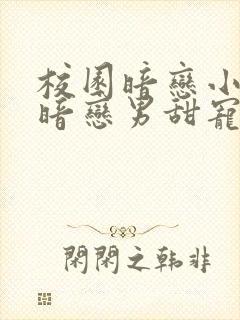 校園暗戀小
暗戀男甜寵
閑閑之韩非